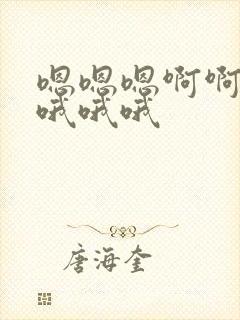 嗯嗯嗯啊啊
哦哦哦
唐海奎